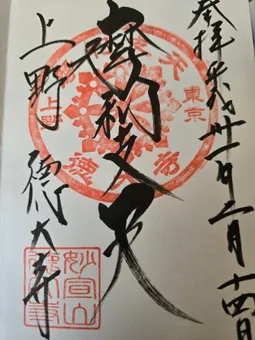 登拝 平成卅一年二月十四日
摩利支天
上野 徳大寺
東京
上野
妙宣山
徳大寺